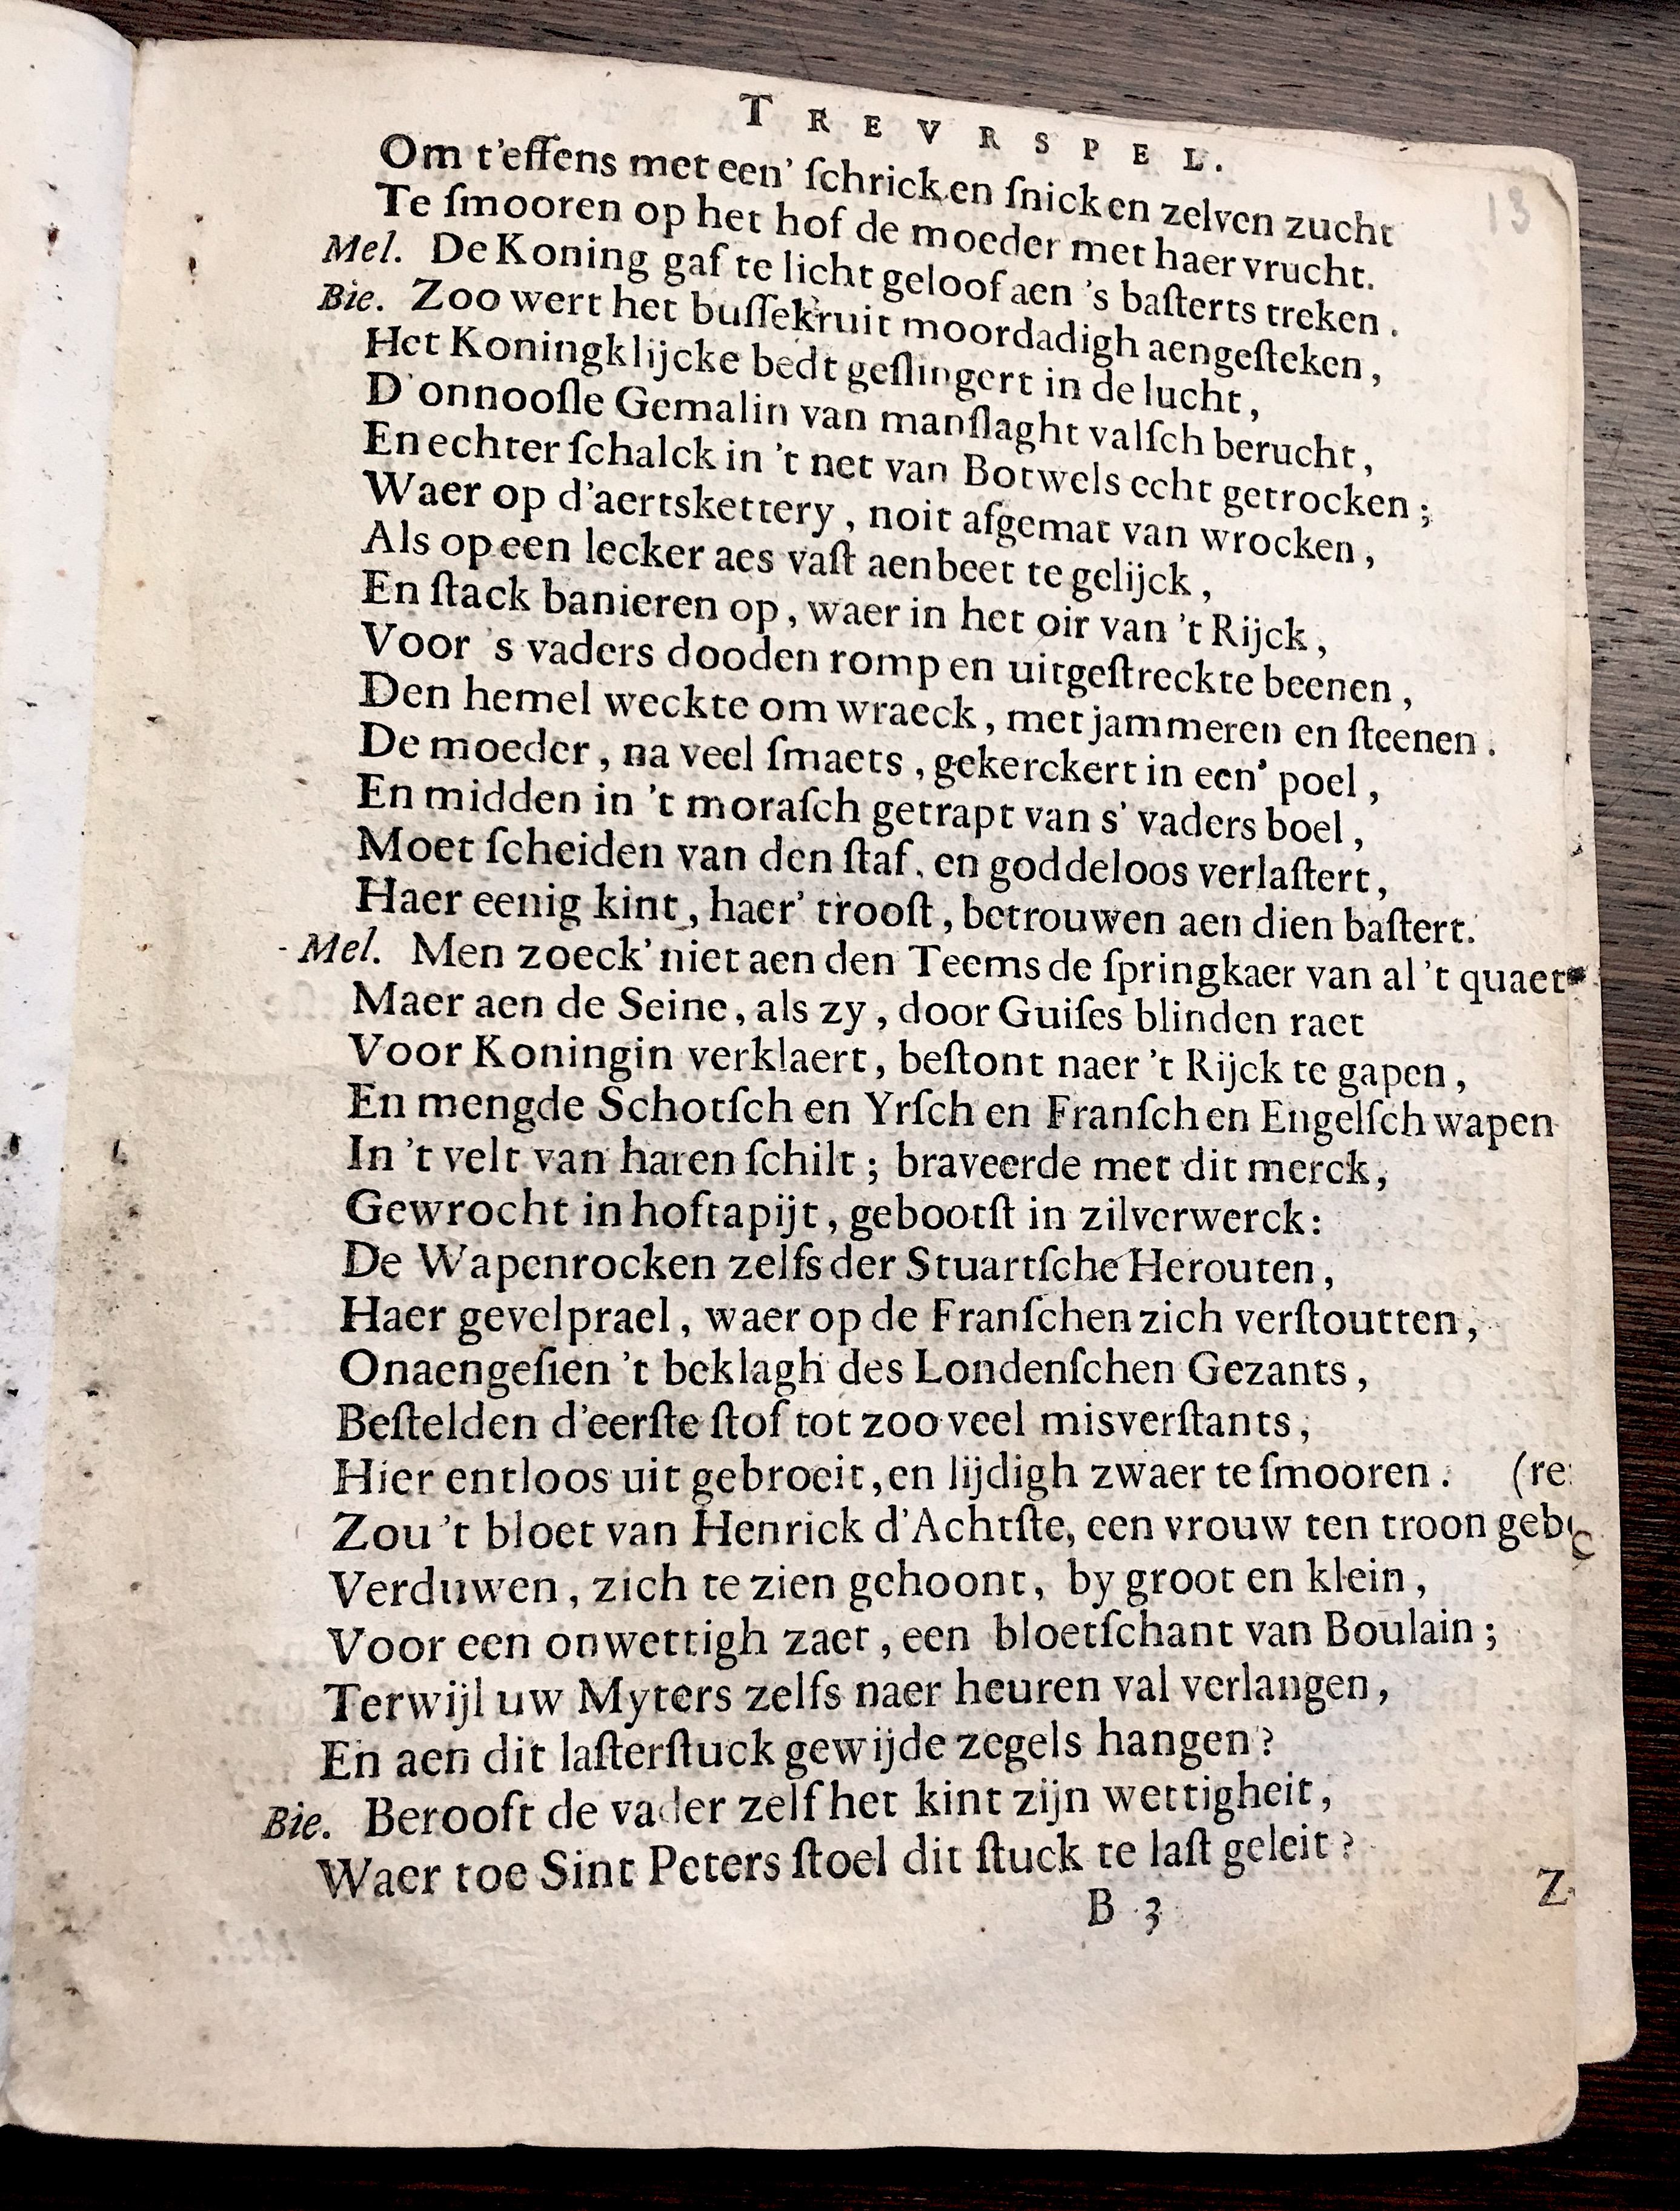 TREVRSPEL.
13
Om t'effens met een' ſchrick en ſnick en zelven zucht
Te ſmooren op het hof de moeder met haer vrucht.
Mel. De Koning gaf te licht geloof aen 's baſterts treken.
Bie. Zoo wert het buſſekruit moordadigh aengeſteken,
Het Koningklijcke bedt geſlingert in de lucht,
D'onnooſle Gemalin van manſlaght valſch berucht,
En echter ſchalck in 't net van Botwels echt getrocken;
Waer op d'aertskettery, noit afgemat van wrocken,
Als op een lecker aes vaſt aenbeet te gelijck,
En ſtack banieren op, waer in het oir van 't Rijck,
Voor 's vaders dooden romp en uitgeſtreckte beenen,
Den hemel weckte om wraeck, met jammeren en ſteenen.
De moeder, na veel ſmaets, gekerckert in een' poel,
En midden in 't moraſch getrapt van s' vaders boel,
Moet ſcheiden van den ſtaf, en goddeloos verlaſtert,
Haer eenig kint, haer' trooſt, betrouwen aen dien baſtert.
Mel. Men zoeck' niet aen den Teems de ſpringkaer van al 't quaet
Maer aen de Seine, als zy, door Guiſes blinden raet
Voor Koningin verklaert, beſtont naer 't Rijck te gapen,
En mengde Schotſch en Yrſch en Franſch en Engelſch wapen
In 't velt van haren ſchilt; braveerde met dit merck,
Gewrocht in hoftapijt, gebootſt in zilverwerck:
De Wapenrocken zelfs der Stuartſche Herouten,
Haer gevelprael, waer op de Franſchen zich verſtoutten,
Onaengeſien 't beklagh des Londenſchen Gezants,
Beſtelden d'eerſte ſtof tot zoo veel misverſtants,
Hier entloos uit gebroeit, en lijdigh zwaer te ſmooren. (re
Zou 't bloet van Henrick d'Achtſte, een vrouw ten troon geb
Verduwen, zich te zien gehoont, by groot en klein,
Voor een onwettigh zaet, een bloetſchant van Boulain;
Terwijl uw Myters zelfs naer heuren val verlangen,
En aen dit laſterſtuck gewijde zegels hangen?
Bie. Berooft de vader zelf het kint zijn wettigheit,
Waer toe Sint Peters ſtoel dit ſtuck te laſt geleit?
B 3 Z